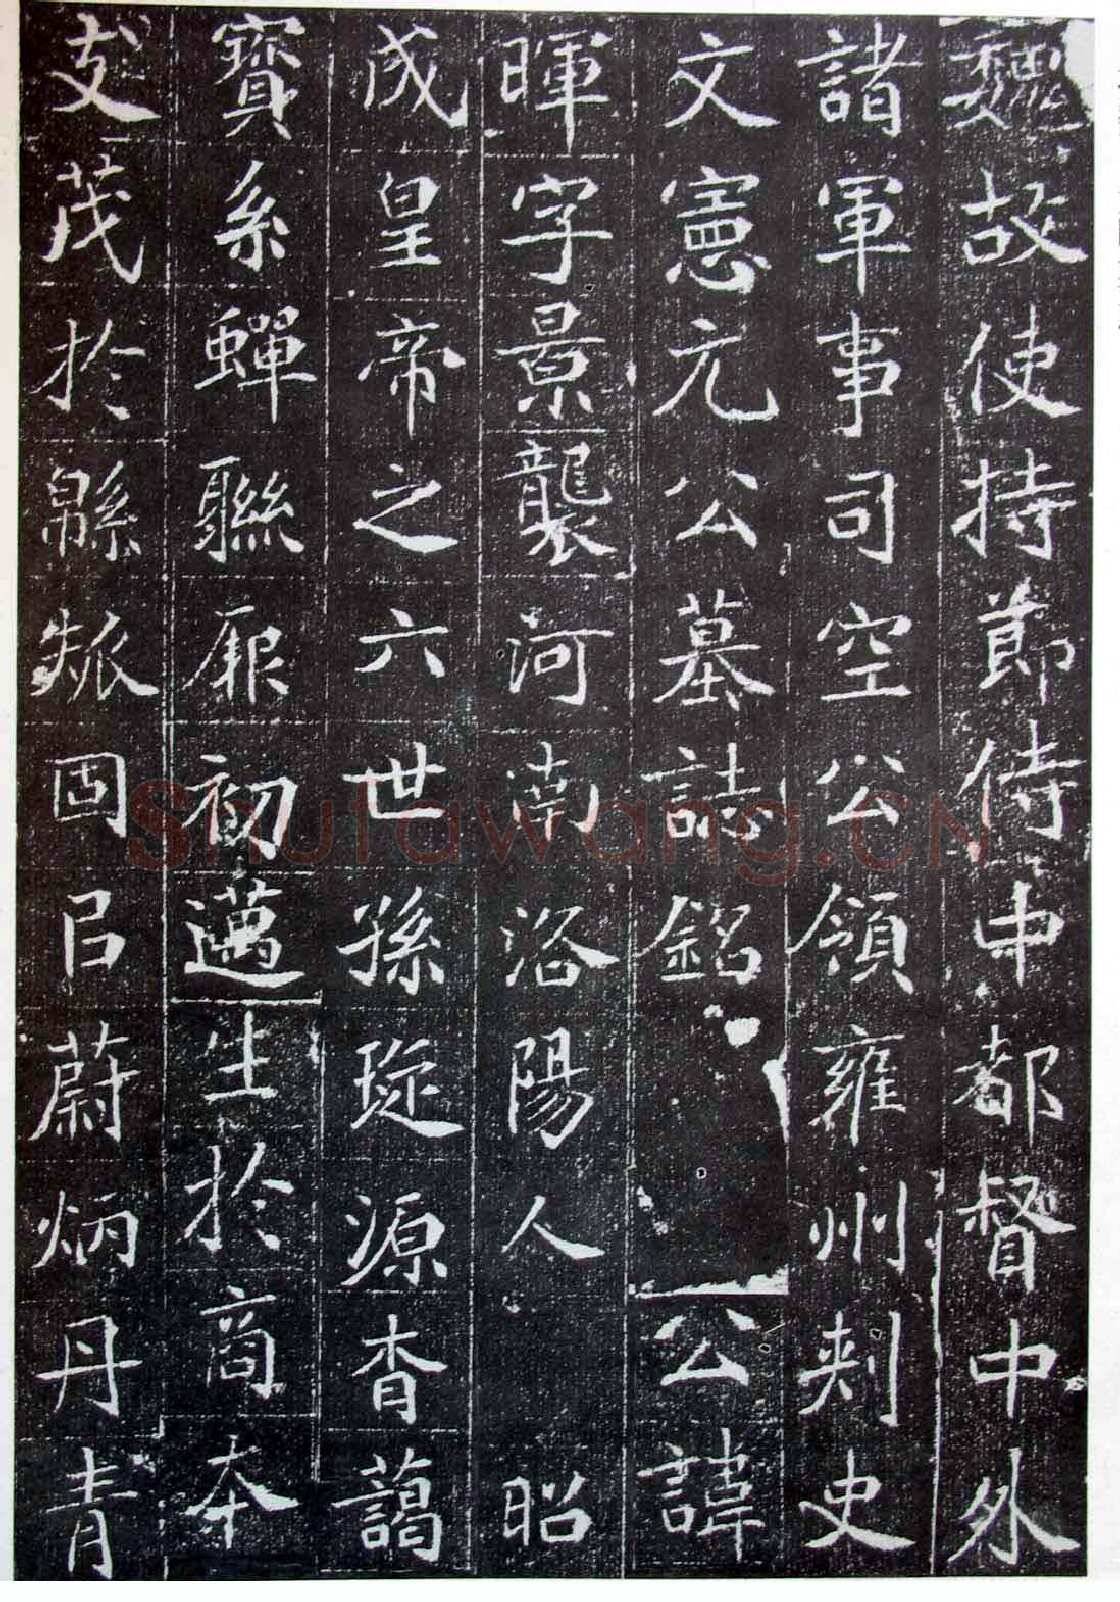 魏故使持節侍中都督中外
諸軍事司空公領雍州刾史
文憲元公墓誌銘 公諱
暉字景襲河南洛陽人 昭
成皇帝之六世孫琁源杳藹
寶系蟬聯厤初邁生於商本
支茂於緜瓞固㠯蔚炳丹青
Shufawang.CN